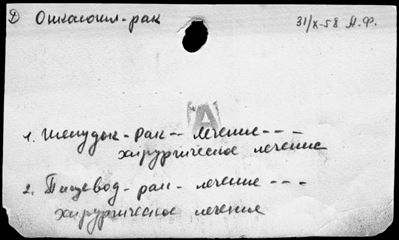 ② Онкология-рак 31/X-58 А.Ф.
А
1. Желудок - рак -- лечение ---
хирургическое лечение
2. Пищевод - рак - лечение ---
хирургическое лечение